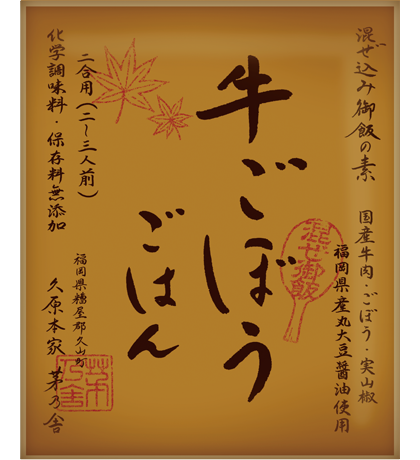 混ぜ込み御飯の素
国産牛肉・ごぼう・実山椒
福岡県産丸大豆醤油使用
混ぜ御飯
牛ごぼう
ごはん
二合用(二〜三人前)
化学調味料・保存料無添加
福岡県糟屋郡久山町
久原本家 茅乃舎
茅乃舎